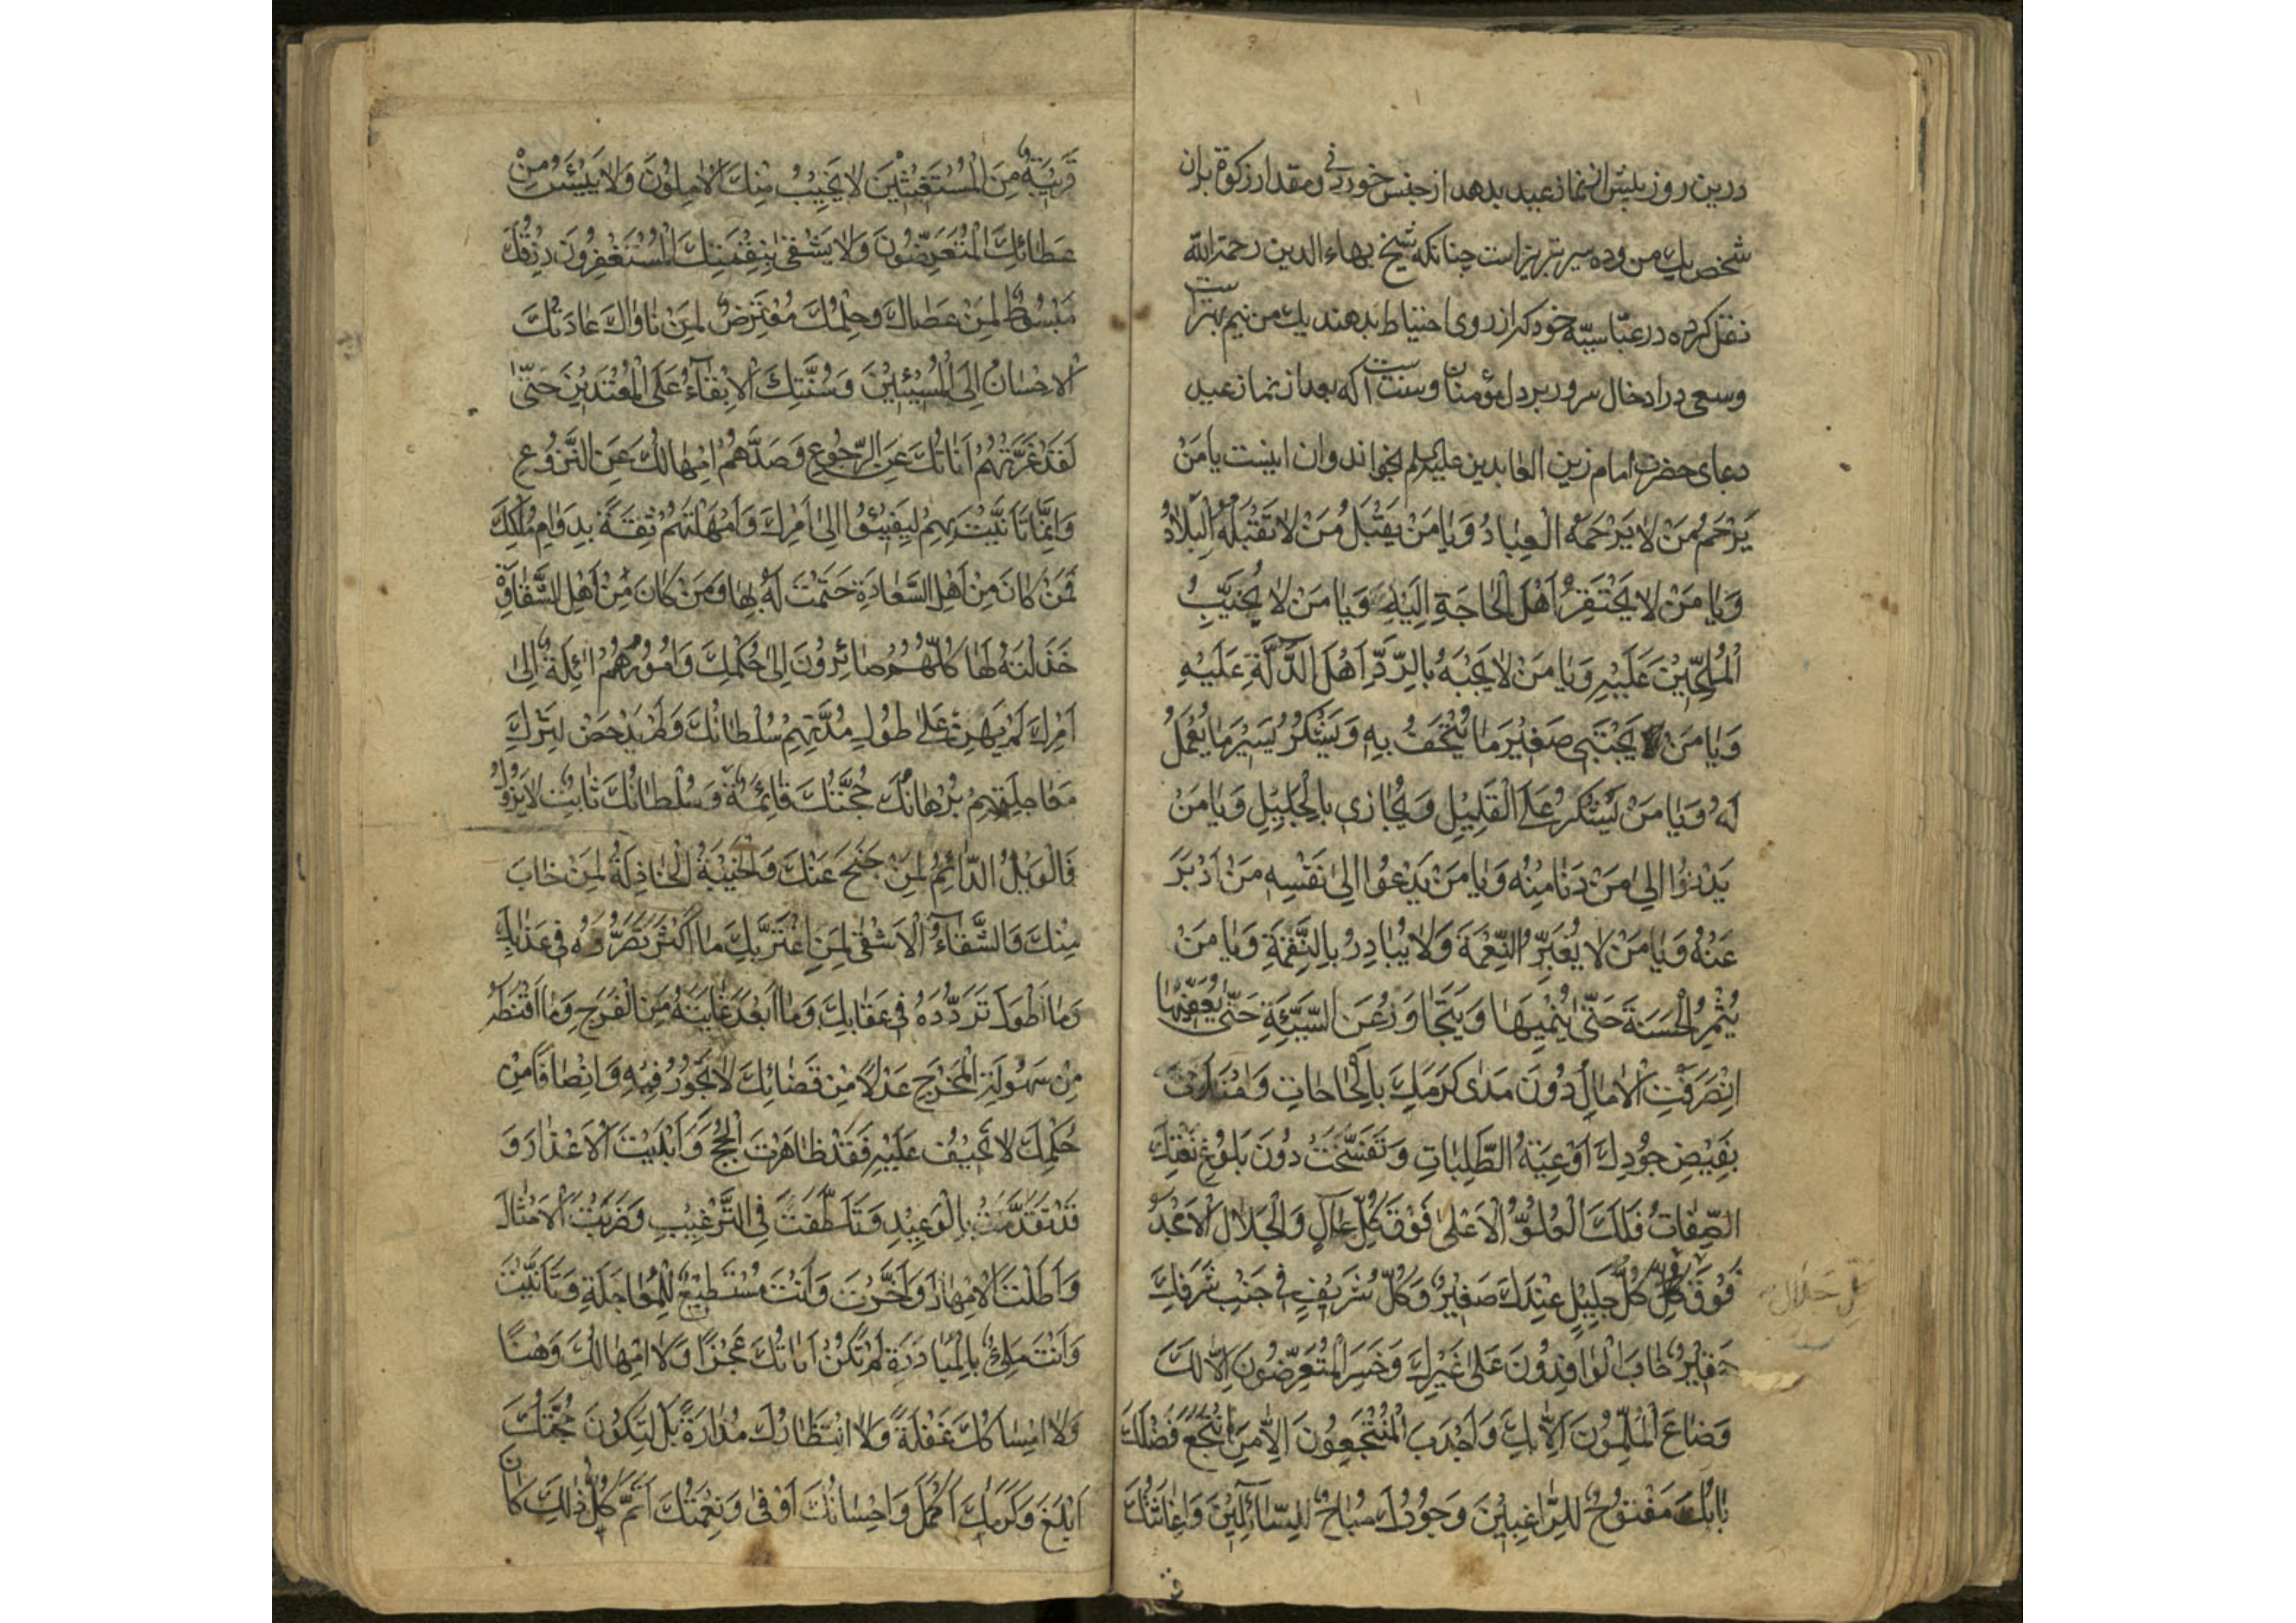 درین روز پیش از نماز عید بدهد از جنس خوردنی و مقدار زکوة بدان
شخص یک من و ده سیر تبریز است چنانکه شیخ بهاء الدین رحمة الله
نقل کرده در عباسیه خود که از روی احتیاط بدهند یک من نیم بهتر است
و سعی در ادخال سرور بر دل مؤمنان و سنت است که بعد از نماز عید
دعای حضرت امام زین العابدین علیه السلم بخواند و ان اینست یا مَنْ
يَرْحَمُ مَنْ لا يَرْحَمُهُ الْعِبادُ وَيا مَنْ يَقْبَلُ مَنْ لا تَقْبَلُهُ الْبِلادُ
وَيا مَنْ لا يَحْتَقِرُ اَهْلَ الْحاجَةِ اِلَيْهِ وَيا مَنْ لا يُخَيِّبُ
الْمُلِحّينَ عَلَيْهِ وَيا مَنْ لا يَجْبَهُ بِالرَّدِّ اَهْلَ الدّالَّةِ عَلَيْهِ
وَيا مَنْ يَجْتَبي صَغيرَ ما يُتْحَفُ بِهِ وَيَشْكُرُ يَسيرَ ما يُعْمَلُ
لَهُ وَيا مَنْ يَشْكُرُ عَلَى الْقَليلِ وَيُجازي بِالْجَليلِ وَيا مَنْ
يَدْنُوا اِلى مَنْ دَنا مِنْهُ وَيا مَنْ يَدْعُوا اِلى نَفْسِهِ مَنْ اَدْبَرَ
عَنْهُ وَيا مَنْ لا يُغَيِّرُ النِّعْمَةَ وَلا يُبادِرُ بِالنَّقِمَةِ وَيا مَنْ
يُثْمِرُ الْحَسَنَةَ حَتّى يُنْمِيَها وَيَتَجاوَزُ عَنِ السَّيِّئَةِ حَتّى يُعَفِّيَها
اِنْصَرَفَتِ الْامالُ دُونَ مَدى كَرَمِكَ بِالْحاجاتِ وَامْتَلَأَتْ
بِفَيْضِ جُودِكَ اَوْعِيَةُ الطَّلِباتِ وَتَفَسَّخَتْ دُونَ بُلُوغِ نَعْتِكَ
الصِّفاتُ فَلَكَ الْعُلُوُّ الْاَعْلى فَوْقَ كُلِّ عالٍ وَالْجَلالُ الْاَمْجَدُ
فَوْقَ كُلِّ كُلُّ جَليلٍ عِنْدَكَ صَغيرٌ وَكُلُّ شَريفٍ في جَنْبِ شَرَفِكَ
كل جلال
حَقيرٌ خابَ الْوافِدُونَ عَلى غَيْرِكَ وَخَسِرَ الْمُتَعَرِّضُونَ اِلّا لَكَ
وَضاعَ الْمُلِمُّونَ اِلّا بِكَ وَاَجْدَبَ الْمُنْتَجِعُونَ اِلّا مَنِ انْتَجَعَ فَضْلَكَ
بابُكَ مَفْتُوحٌ لِلرّاغِبينَ وَجُودُكَ مُباحٌ لِلسّائِلينَ وَاِغاثَتُكَ
قَريبَةٌ مِنَ الْمُسْتَغيثينَ لا يَخيبُ مِنْكَ الْامِلُونَ وَلا يَيْئَسُ مِنْ
عَطائِكَ الْمُتَعَرِّضُونَ وَلا يَشْقى بِنِقْمَتِكَ الْمُسْتَغْفِرُونَ رِزْقُكَ
مَبْسُوطٌ لِمَنْ عَصاكَ وَحِلْمُكَ مُعْتَرِضٌ لِمَنْ ناواكَ عادَتُكَ
الْاِحْسانُ اِلَى الْمُسيئينَ وَسُنَّتُكَ الْاِبْقاءُ عَلَى الْمُعْتَدينَ حَتّى
لَقَدْ غَرَّتْهُمْ اَناتُكَ عَنِ الرُّجُوعِ وَصَدَّهُمْ اِمْهالُكَ عَنِ النُّزُوعِ
وَاِنَّما تَاَنَّيْتَ بِهِمْ لِيَفيئُوا اِلى اَمْرِكَ وَاَمْهَلْتَهُمْ ثِقَةً بِدَوامِ مُلْكِكَ
فَمَنْ كانَ مِنْ اَهْلِ السَّعادَةِ خَتَمْتَ لَهُ بِها وَمَنْ كانَ مِنْ اَهْلِ الشَّقاوَةِ
خَذَلْتَهُ لَها كُلُّهُمْ صائِرُونَ اِلى حُكْمِكَ وَاُمُورُهُمْ ائِلَةٌ اِلى
اَمْرِكَ لَمْ يَهِنْ عَلى طُولِ مُدَّتِهِمْ سُلْطانُكَ وَلَمْ يَدْحَضْ لِتَرْكِ
مُعاجَلَتِهِمْ بُرْهانُكَ حُجَّتُكَ قائِمَةٌ وَسُلْطانُكَ ثابِتٌ لا يَزُولُ
فَالْوَيْلُ الدّائِمُ لِمَنْ جَنَحَ عَنْكَ وَالْخَيْبَةُ الْخاذِلَةُ لِمَنْ خابَ
مِنْكَ وَالشَّقاءُ الْاَشْقى لِمَنِ اغْتَرَّ بِكَ ما اَكْثَرَ تَصَرُّفَهُ في عَذابِكَ
وَما اَطْوَلَ تَرَدُّدَهُ في عِقابِكَ وَما اَبْعَدَ غايَتَهُ مِنَ الْفَرَجِ وَما اَقْنَطَهُ
مِنْ سُهُولَةِ الْمَخْرَجِ عَدْلًا مِنْ قَضائِكَ لا تَجُورُ فيهِ وَاِنْصافًا مِنْ
حُكْمِكَ لا تَحيفُ عَلَيْهِ فَقَدْ ظاهَرْتَ الْحُجَجَ وَاَبْلَيْتَ الْاَعْذارَ وَ
قَدْ تَقَدَّمْتَ بِالْوَعيدِ وَتَلَطَّفْتَ فِي التَّرْغيبِ وَضَرَبْتَ الْاَمْثالَ
وَاَطَلْتَ الْاِمْهالَ وَاَخَّرْتَ وَاَنْتَ مُسْتَطيعٌ لِلْمُعاجَلَةِ وَتَاَنَّيْتَ
وَاَنْتَ مَلِيءٌ بِالْمُبادَرَةِ لَمْ تَكُنْ اَناتُكَ عَجْزًا وَلا اِمْهالُكَ وَهْنًا
وَلا اِمْساكُكَ غَفْلَةً وَلا انْتِظارُكَ مُداراةً بَلْ لِتَكُونَ حُجَّتُكَ
اَبْلَغَ وَكَرَمُكَ اَكْمَلَ وَاِحْسانُكَ اَوْفى وَنِعْمَتُكَ اَتَمَّ كُلُّ ذلِكَ كانَ